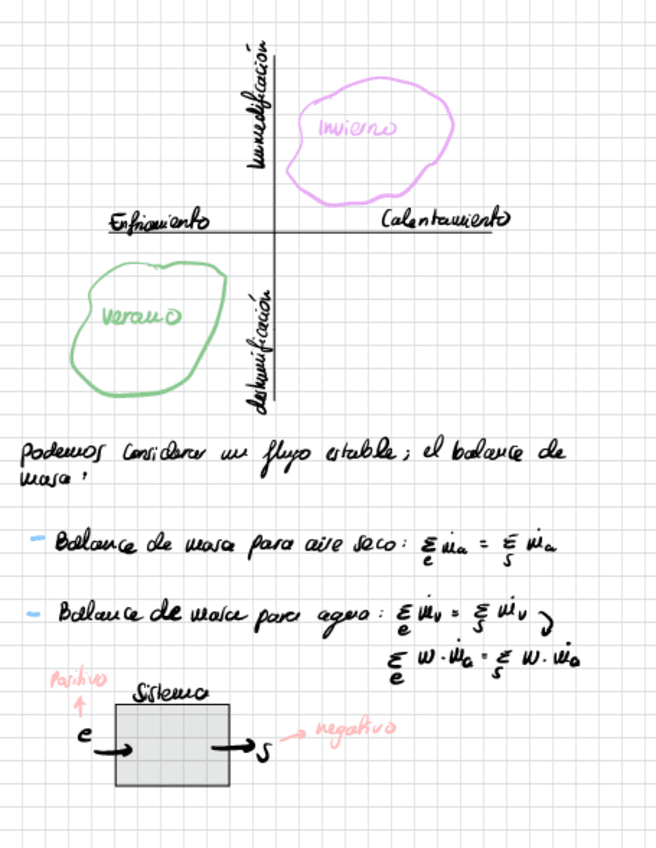 humedificación
Invierno
Enfriamiento
Calentamiento
Verano
deshumificación
podemos considerar un flujo estable; el balance de
masa:
- Balance de masa para aire seco: Σₑ ṁₐ = Σₛ ṁₐ
- Balance de masa para agua: Σₑ ṁᵥ = Σₛ ṁᵥ
Σₑ w · ṁₐ = Σₛ w · ṁₐ
Positivo
Sistema
e
s
negativo